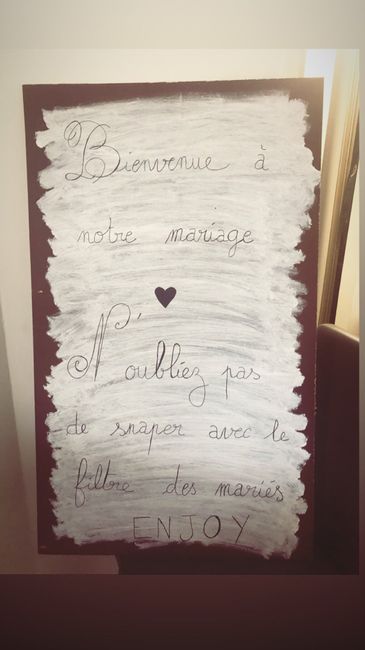 Bienvenue à
notre mariage
♥
N'oubliez pas
de snaper avec le
filtre des mariés
ENJOY